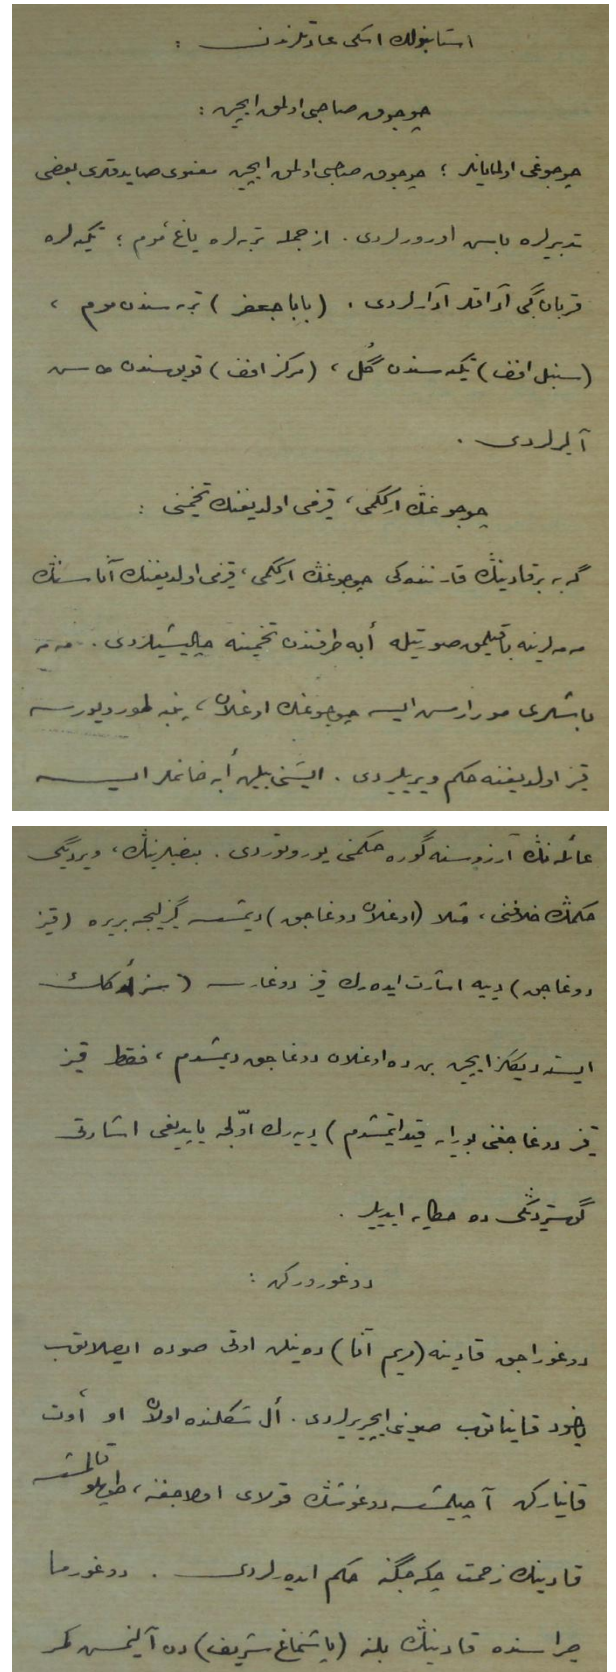 استانبولك اسكى عادتلرندن :
چوجوق صاحبى اولمق ايچين :
چوجوغى اولمايانلر ؛ چوجوق صاحبى اولمق ايچين معنوى صايدقلرى بعضى
تدبيرلره باش اورورلردى . از جمله تربه لره ياغ ، موم ؛ تكيه لره
قربان كبى آداقلر آدارلردى . (بابا جعفر) تربه سندن موم ،
(سنبل افندى) تكيه سندن گُل ، (مركز افندى) قويوسندن
آليرلردى .
چوجوغڭ ارككمى ، قيزمى اولديغنڭ تخمينى :
گبه بر قادينڭ قارننده كى چوجوغڭ ارككمى ، قيزمى اولديغنڭ آناسنڭ
مه مه لرينه باقيلمق صورتيله أبه طرفندن تخمينه چاليشيلردى . مه مه
باشلرى مورارمش ايسه چوجوغڭ اوغلان ، پنبه طورويورسه
قيز اولديغنه حكم ويريليردى . ايشنى بيلن أبه خانملر ايسه
عائله نڭ آرزوسنه گوره حكمنى يوروتوردى . بعضيلرينڭ ، ويرديگى
حكمڭ خلافنى ، مثلا (اوغلان دوغاجق) ديمشسه گيزليجه بر يره (قيز
دوغاجق) دييه اشارت ايده رك قيز دوغارسه (سز أركك
ايسته ديكڭز ايچين بن ده اوغلان دوغاجق ديمشدم ، فقط قيز
قيز دوغاجغنى بورايه قيد ايتمشدم) دييه رك اوّلجه ياپديغى اشارتى
گوسترديگى ده حكايه ايديلير .
دوغوروركن :
دوغوراجق قادينه (مريم آنا) دينلن اوتى صوده ايصلاتوب
ياخود قايناتوب صوينى ايچيريرلردى . أل شكلنده اولان او أوت
قايناركن آچيلمشسه دوغوشڭ قولاى اولاجغنه ، طوپلو قالمشسه
قادينڭ زحمت چكه جگنه حكم ايدرلردى . دوغورما
صراسنده قادينڭ بلنه (باشماغ شريف) دن آلينمش كمر